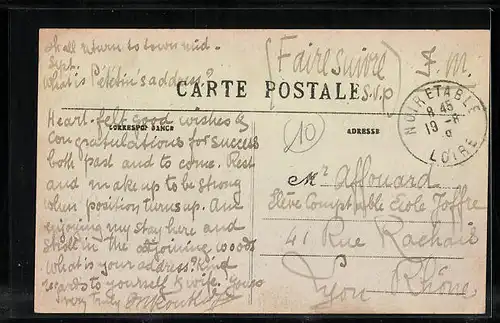 Shall return to town mid-
Sept.
What is Pététin's address?
[Faire suivre
S.V.P]
CARTE POSTALE
CORRESPONDANCE
ADRESSE
NOIRETABLE
8 45
19 -8
9
LOIRE
10
Heart-felt good wishes &
congratulations for success
both past and to come. Rest
and make up to be strong
when position turns up. Am
enjoying my stay here and
stroll in the adjoining woods
What is your address? Kind
regards to yourself & wife. Yours
very truly
Mr Affouard
Elève Comptable Ecole Joffre
41 Rue Rachais
Lyon Rhône